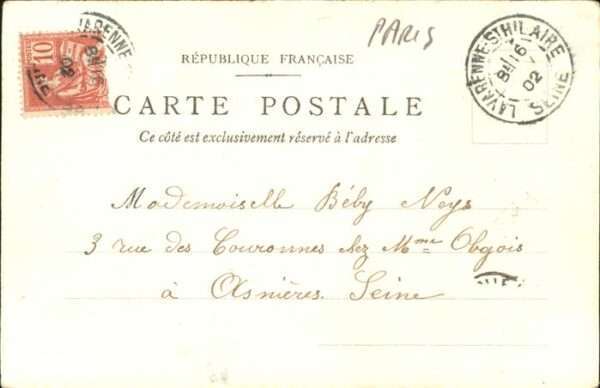 PARIS
10
LAVARENNE-ST-HILAIRE
8E/16
02
SEINE
RÉPUBLIQUE FRANÇAISE
CARTE POSTALE
Ce côté est exclusivement réservé à l'adresse
Mademoiselle Béby Neys
3 rue des Couronnes chez Mme Obgois
à Asnières. Seine